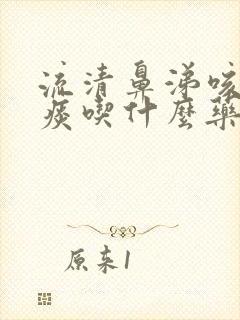 流清鼻涕咳
痰喫什麼藥
原来1